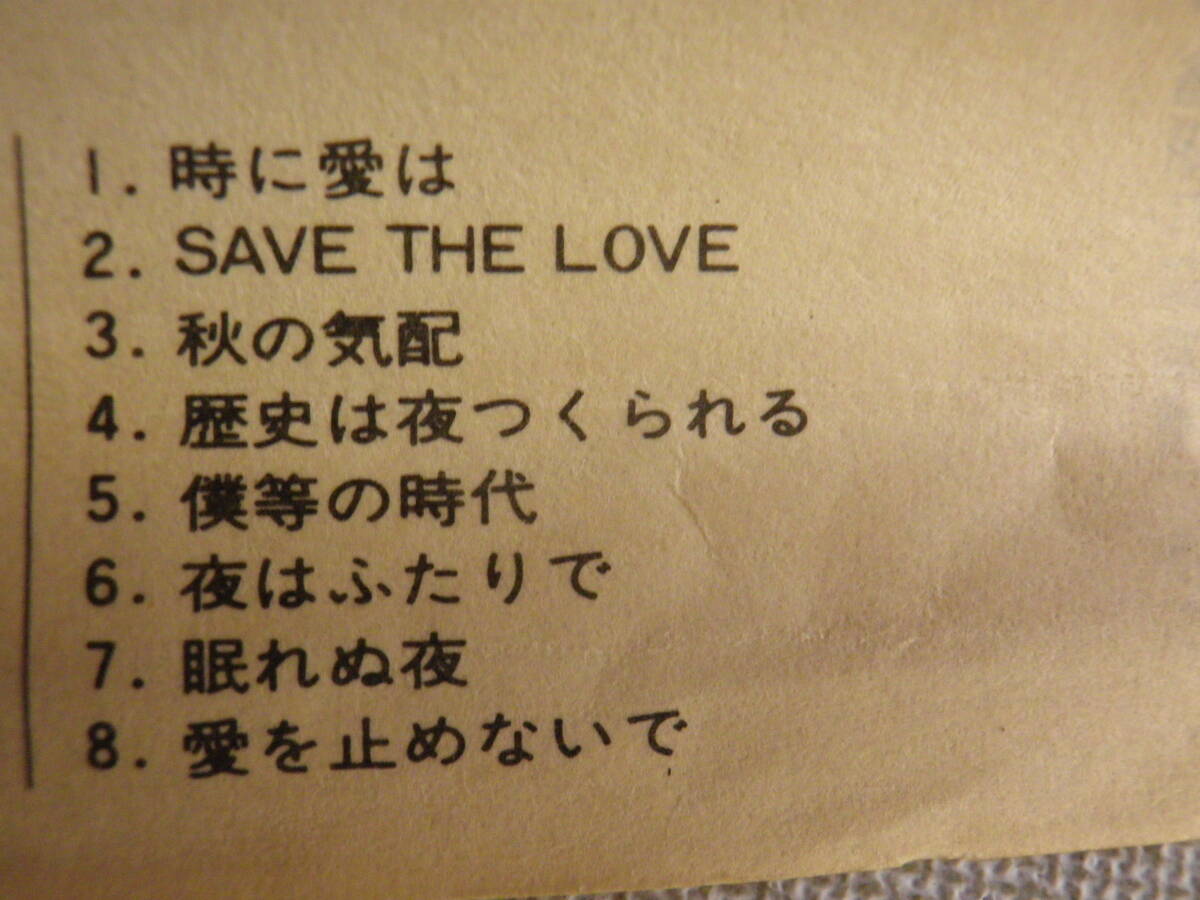 1. 時に愛は
2. SAVE THE LOVE
3. 秋の気配
4. 歴史は夜つくられる
5. 僕等の時代
6. 夜はふたりで
7. 眠れぬ夜
8. 愛を止めないで